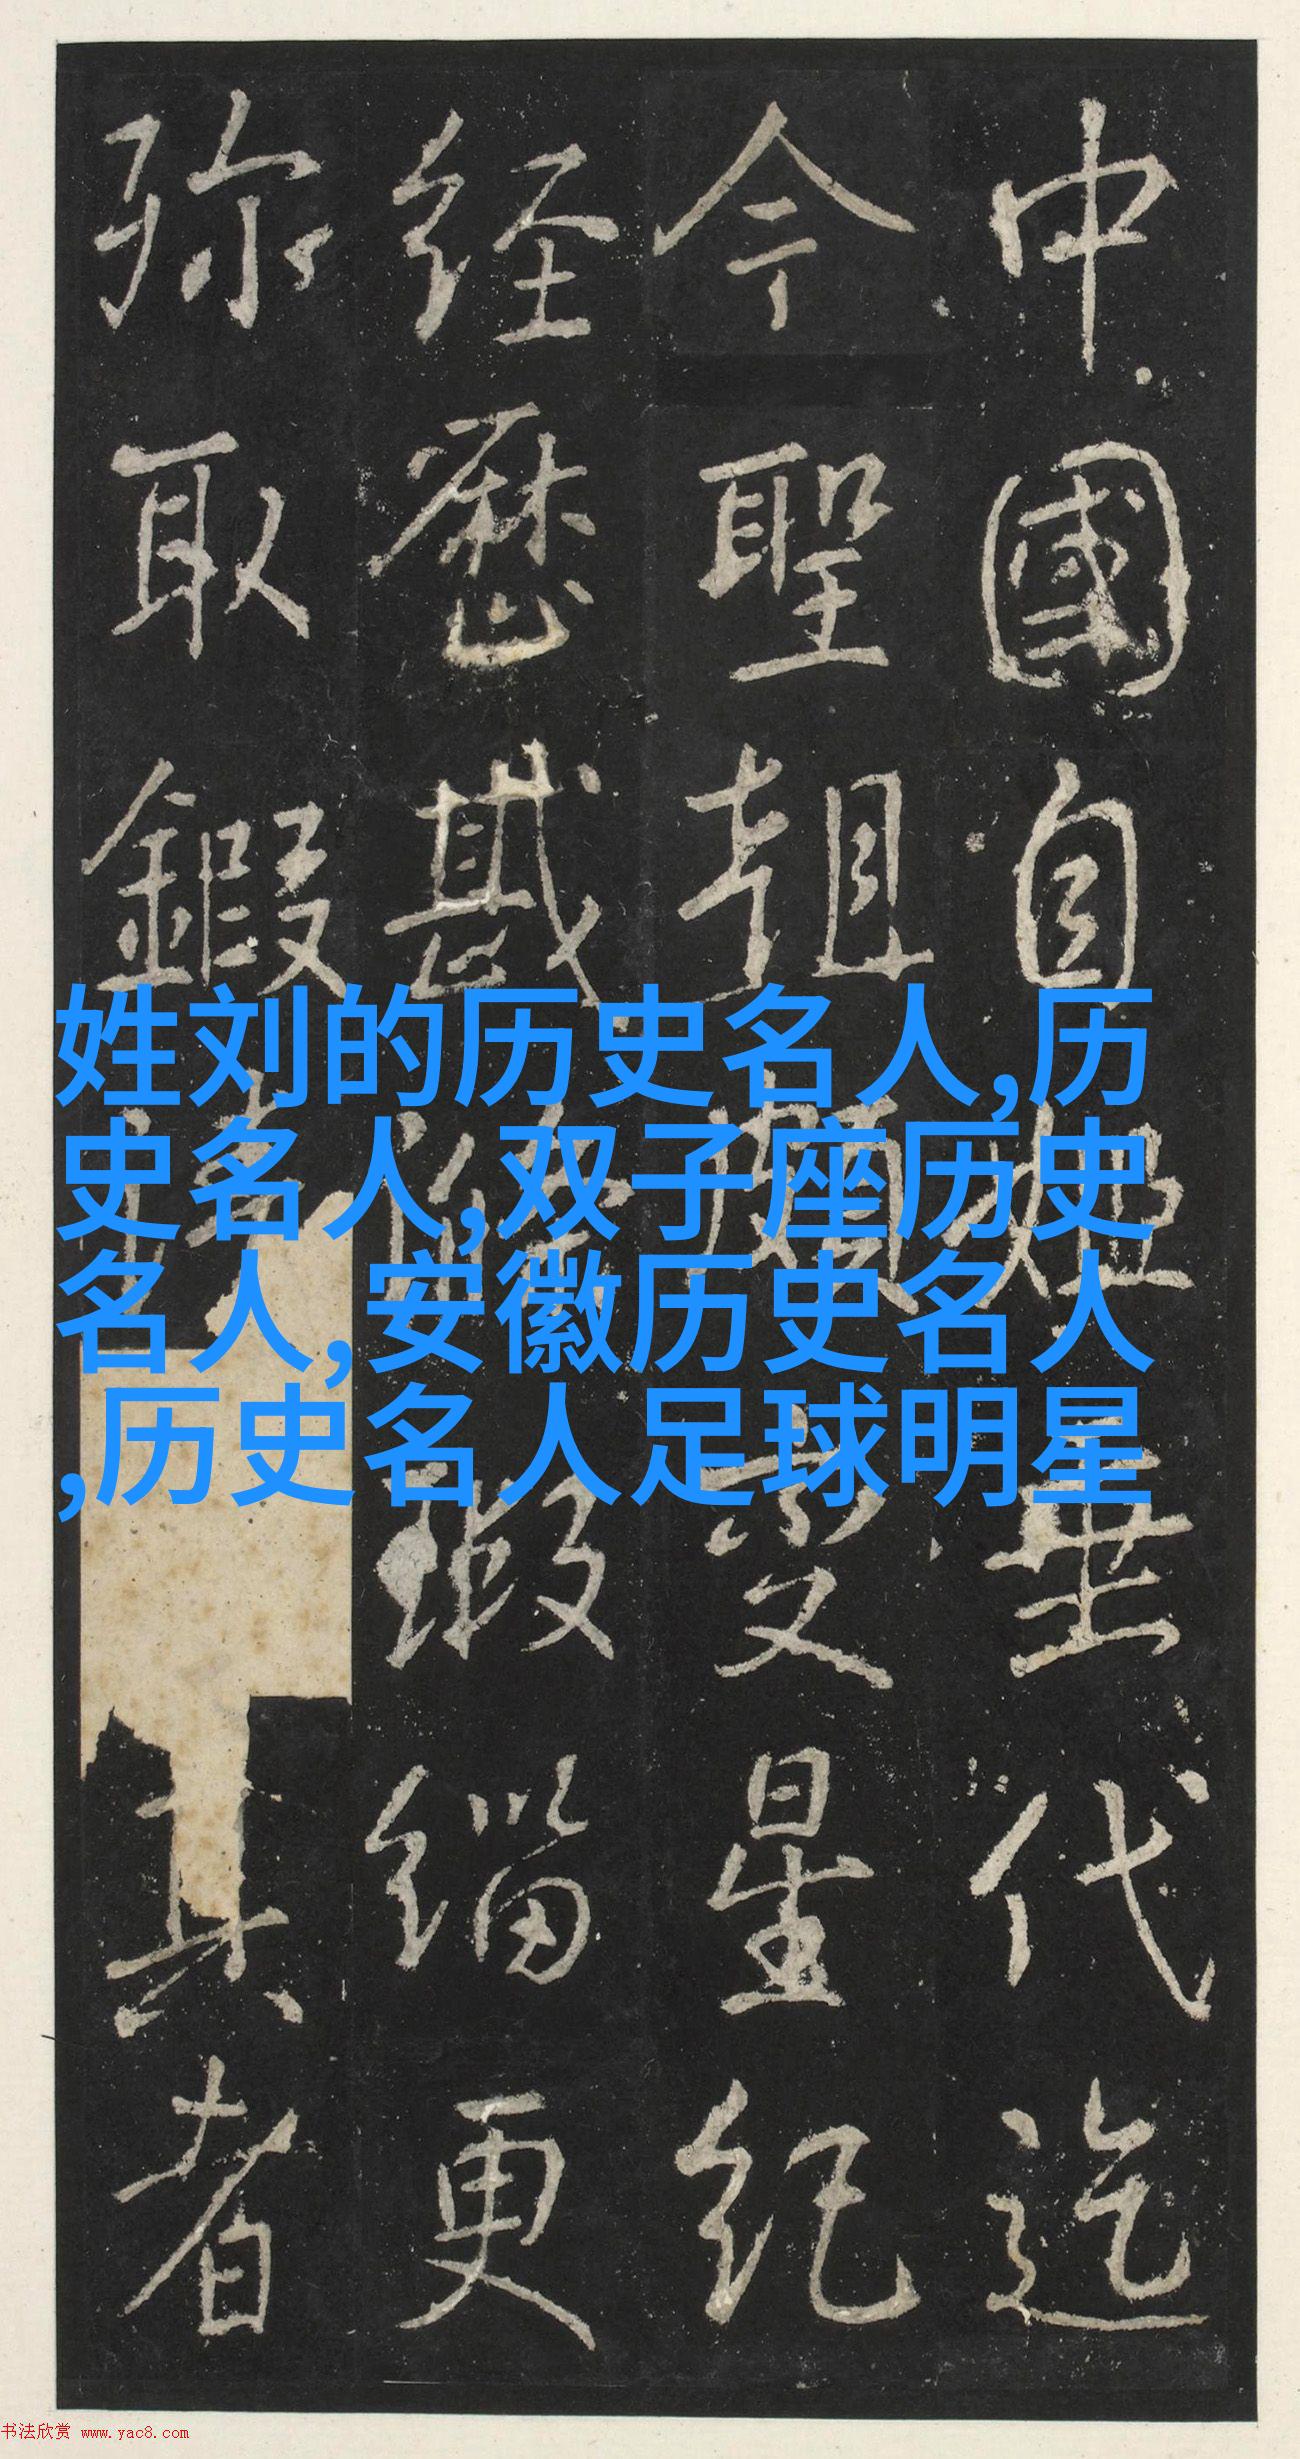 中國自姬垂代迄
今聖朝
星紀
经歷
緇更
弥取鍜
真者
姓刘的历史名人,历
史名人,双子座历史
名人,安徽历史名人
,历史名人足球明星
书法欣赏 www.yac8.com